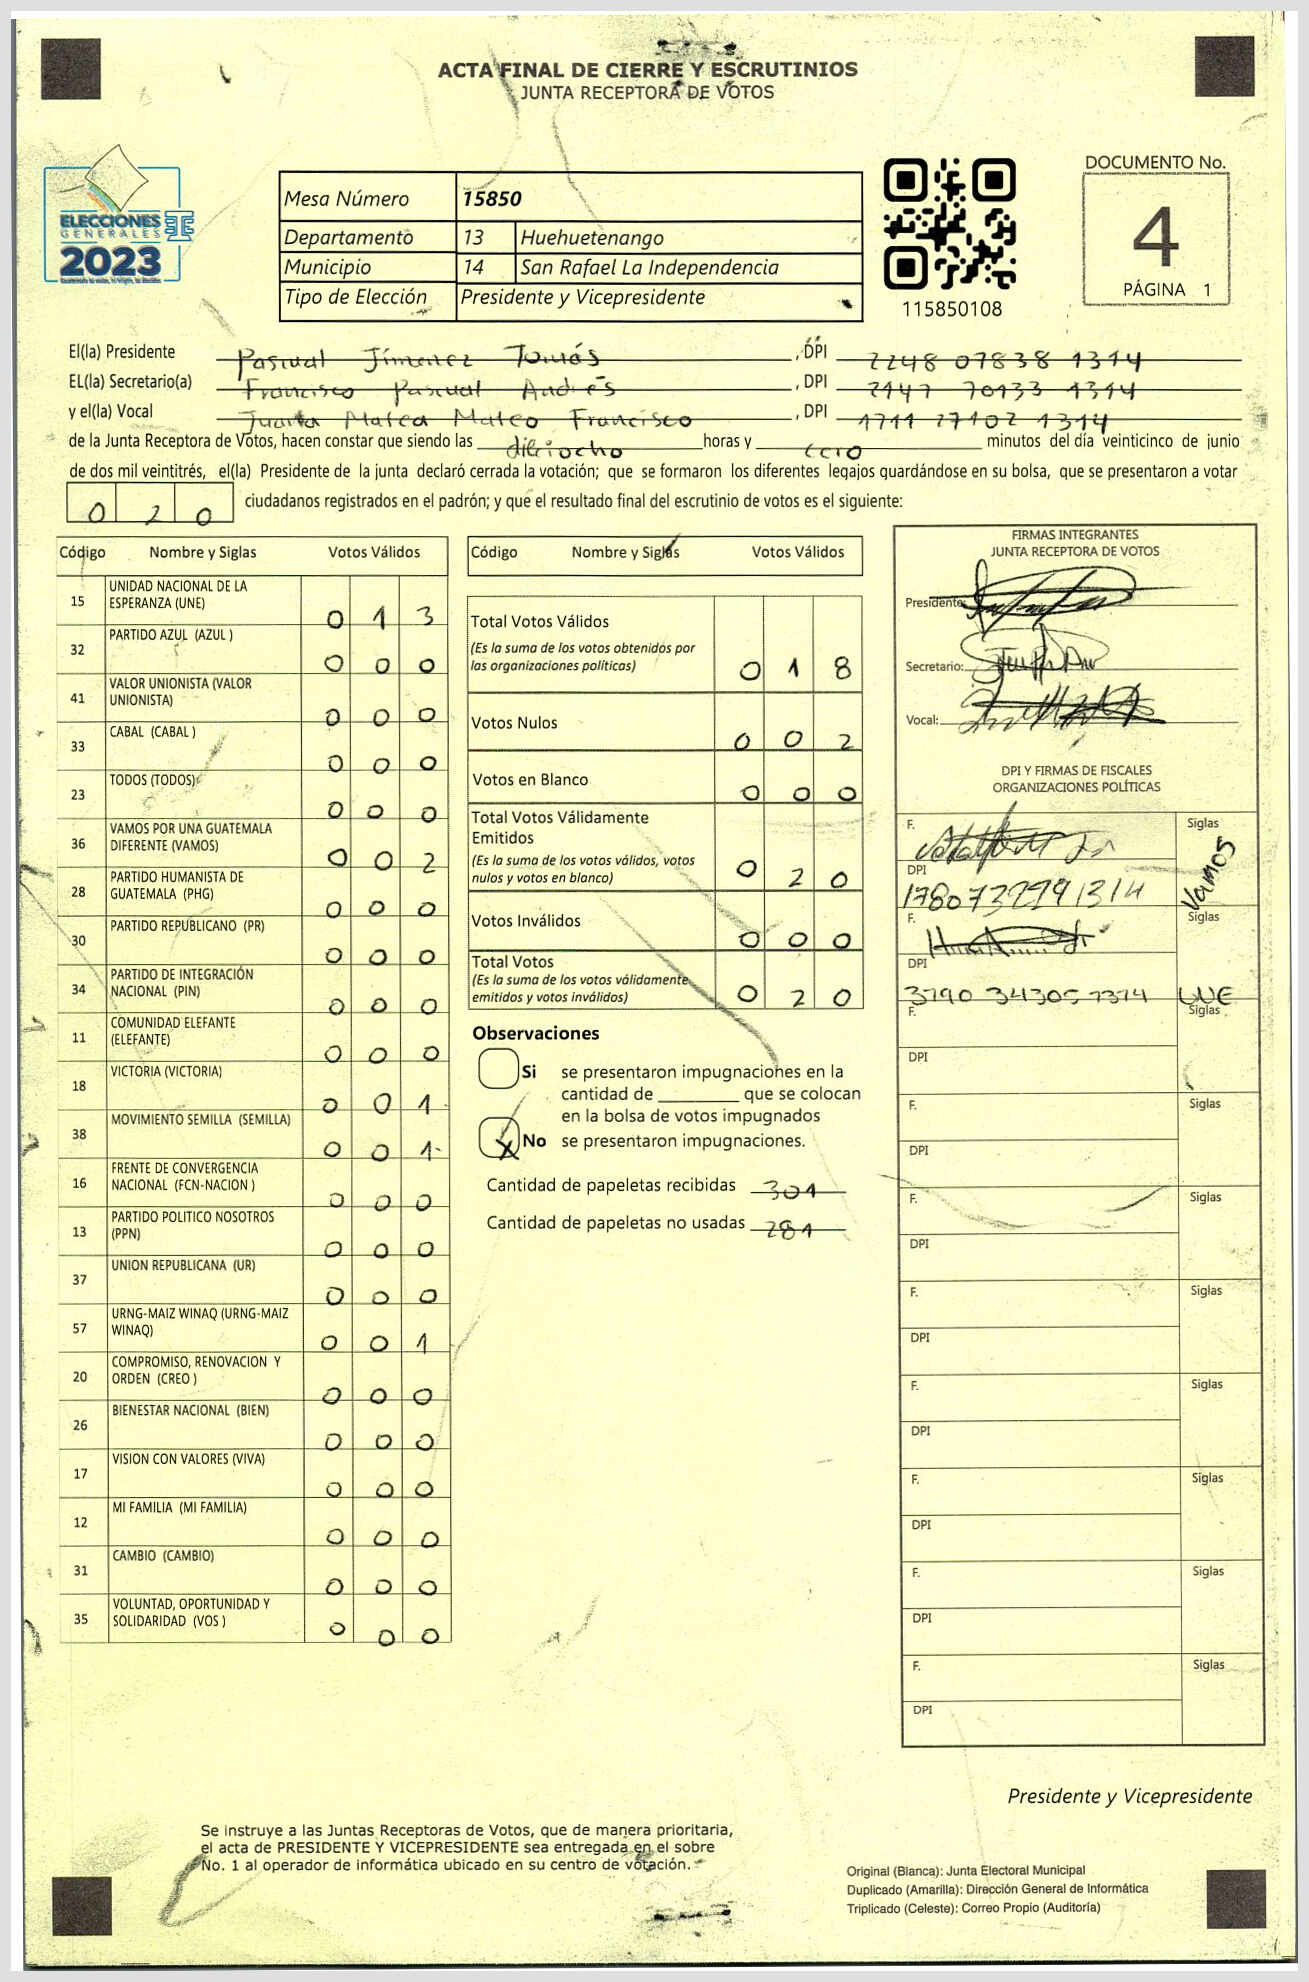 ACTA FINAL DE CIERRE Y ESCRUTINIOS
JUNTA RECEPTORA DE VOTOS
ELECCIONES
GENERALES
2023
Mesa Número 15850
Departamento 13 Huehuetenango
Municipio 14 San Rafael La Independencia
Tipo de Elección Presidente y Vicepresidente
115850108
DOCUMENTO No.
4
PÁGINA 1
El(la) Presidente Pascual Jimenez Tomás , DPI 2248 07838 1314
EL(la) Secretario(a) Francisco Pascual Andrés , DPI 2147 70133 1314
y el(la) Vocal Juana Matea Mateo Francisco , DPI 1711 27102 1314
de la Junta Receptora de Votos, hacen constar que siendo las horas y cero minutos del día veinticinco de junio
de dos mil veintitrés, el(la) Presidente de la junta declaró cerrada la votación; que se formaron los diferentes legajos quardándose en su bolsa, que se presentaron a votar
0 2 0 ciudadanos registrados en el padrón; y que el resultado final del escrutinio de votos es el siguiente:
Código Nombre y Siglas Votos Válidos
15 UNIDAD NACIONAL DE LA
ESPERANZA (UNE) 0 1 3
32 PARTIDO AZUL (AZUL ) 0 0 0
41 VALOR UNIONISTA (VALOR
UNIONISTA) 0 0 0
33 CABAL (CABAL ) 0 0 0
23 TODOS (TODOS) 0 0 0
36 VAMOS POR UNA GUATEMALA
DIFERENTE (VAMOS) 0 0 2
28 PARTIDO HUMANISTA DE
GUATEMALA (PHG) 0 0 0
30 PARTIDO REPUBLICANO (PR) 0 0 0
34 PARTIDO DE INTEGRACIÓN
NACIONAL (PIN) 0 0 0
11 COMUNIDAD ELEFANTE
(ELEFANTE) 0 0 0
18 VICTORIA (VICTORIA) 0 0 1
38 MOVIMIENTO SEMILLA (SEMILLA) 0 0 1
16 FRENTE DE CONVERGENCIA
NACIONAL (FCN-NACION ) 0 0 0
13 PARTIDO POLITICO NOSOTROS
(PPN) 0 0 0
37 UNION REPUBLICANA (UR) 0 0 0
57 URNG-MAIZ WINAQ (URNG-MAIZ
WINAQ) 0 0 1
20 COMPROMISO, RENOVACION Y
ORDEN (CREO ) 0 0 0
26 BIENESTAR NACIONAL (BIEN) 0 0 0
17 VISION CON VALORES (VIVA) 0 0 0
12 MI FAMILIA (MI FAMILIA) 0 0 0
31 CAMBIO (CAMBIO) 0 0 0
35 VOLUNTAD, OPORTUNIDAD Y
SOLIDARIDAD (VOS ) 0 0 0
Código Nombre y Siglas Votos Válidos
Total Votos Válidos
(Es la suma de los votos obtenidos por
las organizaciones políticas) 0 1 8
Votos Nulos 0 0 2
Votos en Blanco 0 0 0
Total Votos Válidamente
Emitidos
(Es la suma de los votos válidos, votos
nulos y votos en blanco) 0 2 0
Votos Inválidos 0 0 0
Total Votos
(Es la suma de los votos válidamente
emitidos y votos inválidos) 0 2 0
Observaciones
Si se presentaron impugnaciones en la
cantidad de ________ que se colocan
en la bolsa de votos impugnados
X No se presentaron impugnaciones.
Cantidad de papeletas recibidas 301
Cantidad de papeletas no usadas 281
FIRMAS INTEGRANTES
JUNTA RECEPTORA DE VOTOS
Presidente:
Secretario:
Vocal:
DPI Y FIRMAS DE FISCALES
ORGANIZACIONES POLÍTICAS
F. Siglas
DPI Vamos
F. Siglas
DPI
3190 34305 1314 UNE
F. Siglas
DPI
F. Siglas
DPI
F. Siglas
DPI
F. Siglas
DPI
F. Siglas
DPI
F. Siglas
DPI
F. Siglas
DPI
F. Siglas
DPI
Presidente y Vicepresidente
Se instruye a las Juntas Receptoras de Votos, que de manera prioritaria,
el acta de PRESIDENTE Y VICEPRESIDENTE sea entregada en el sobre
No. 1 al operador de informática ubicado en su centro de votación.
Original (Blanca): Junta Electoral Municipal
Duplicado (Amarilla): Dirección General de Informática
Triplicado (Celeste): Correo Propio (Auditoría)